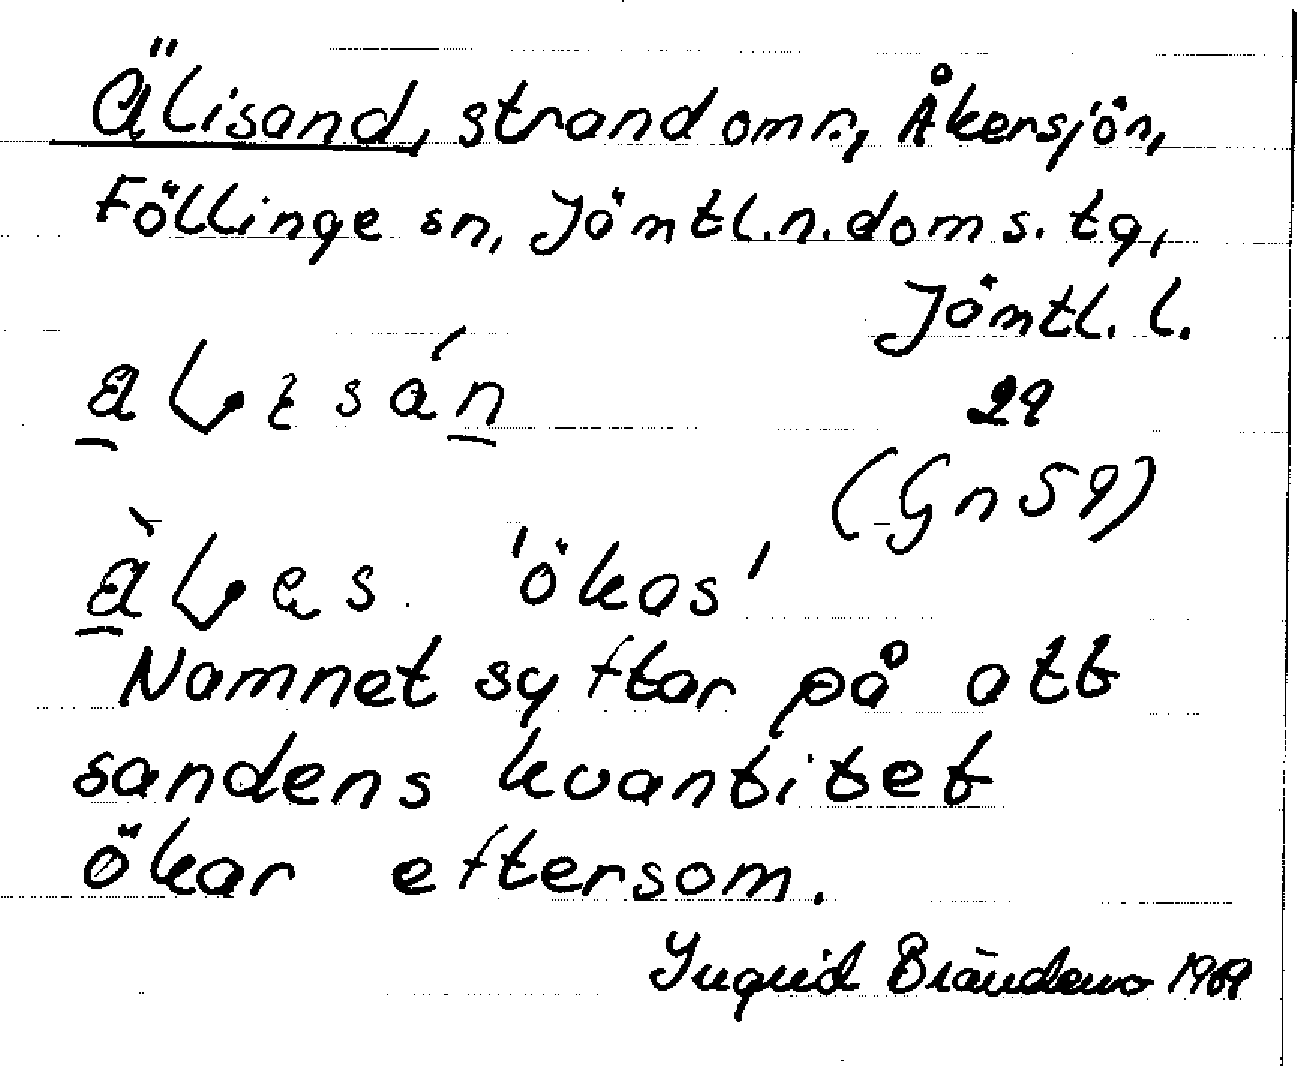 Älisand, strandomr., Åkersjön,
Föllinge sn, Jämtl.n.doms.tg,
Jämtl.l.
29
(Gn 59)
'ökas'
Namnet syftar på att
sandens kvantitet
ökar eftersom.
Ingrid Brändewo 1969